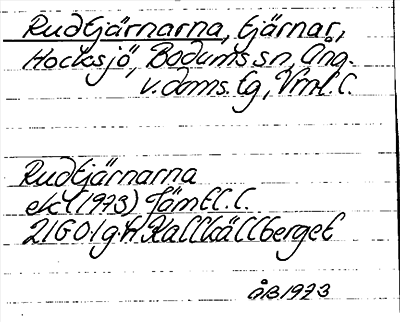 Rudtjärnarna, tjärnar,
Hocksjö, Bodums sn, Ång.
v. doms. tg, Vml. l.
Rudtjärnarna
ek 4 (1973) Jämtl. l.
21G 0-1 g-h Kallkällberget
ÅB 1973